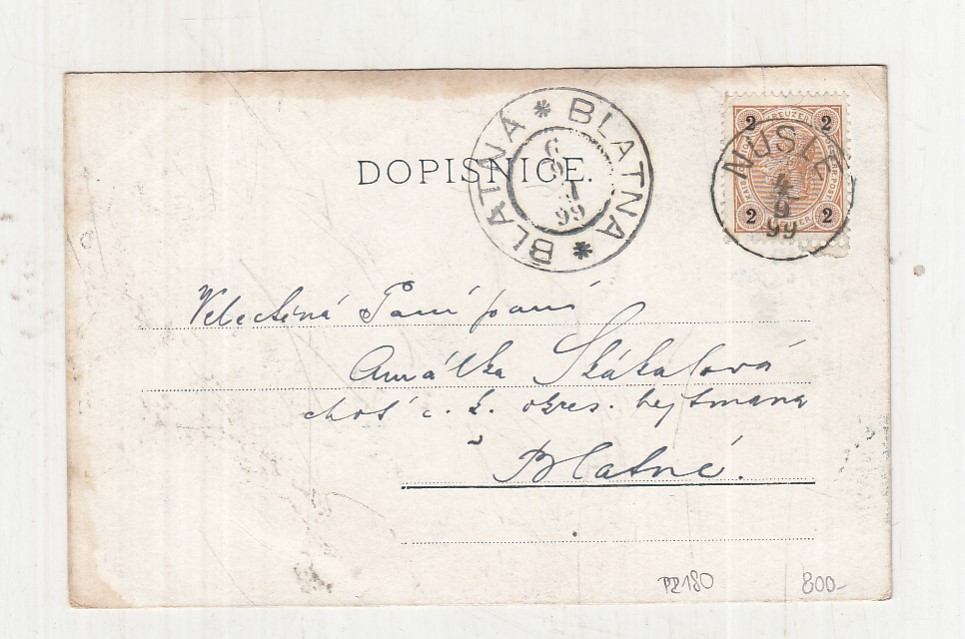 BLATNA * BLATNA *
6 9 99
2 2
NUSLE
4 9 99
2 2
DOPISNICE.
Velectěná Paní paní
Amálka Skákalová
choť c. k. okres. hejtmana
v Blatné.
PZ180 800-